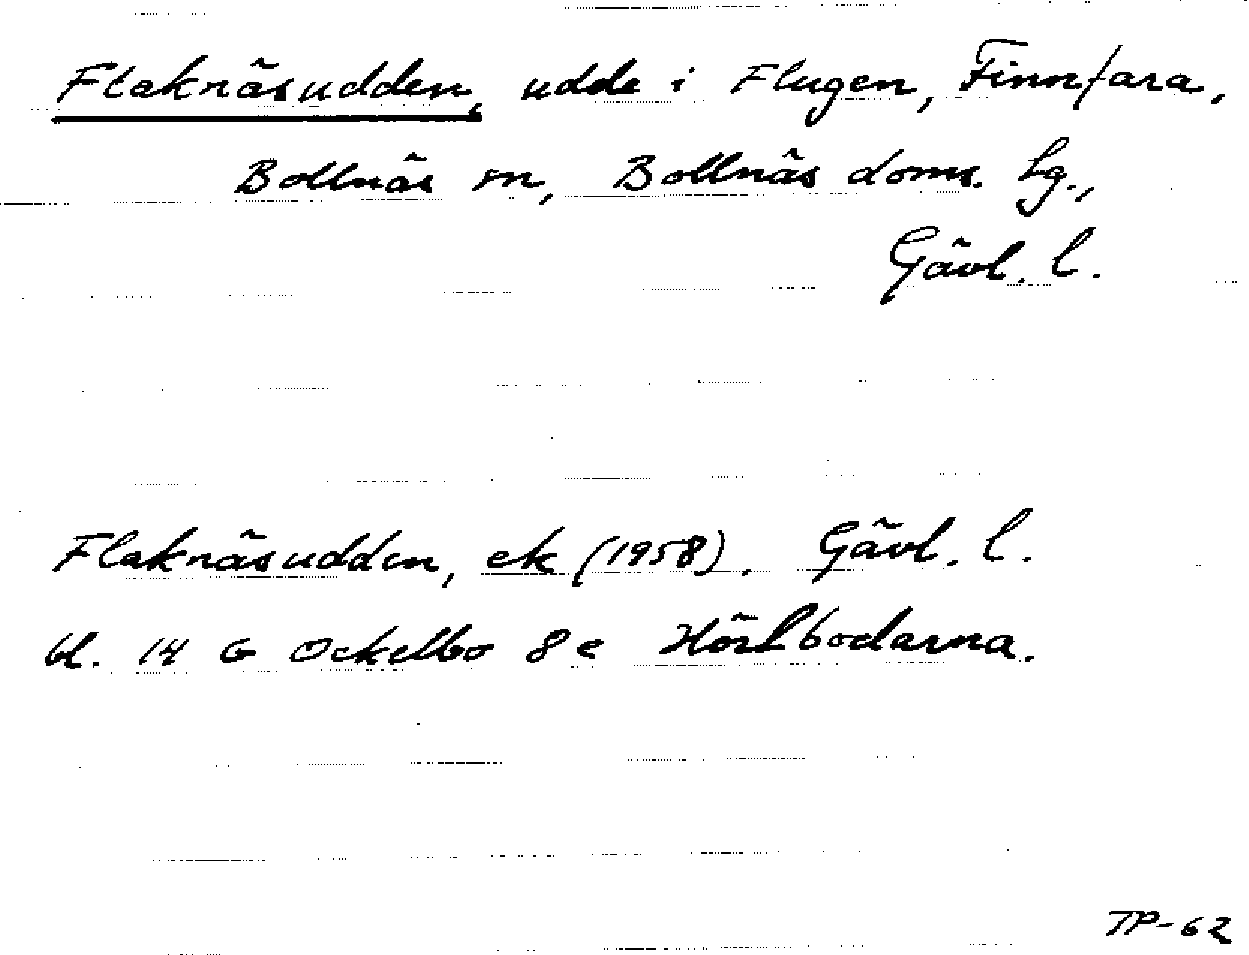 Flaknäsudden, udde i Flugen, Finnfara,
Bollnäs sn, Bollnäs doms. lg.,
Gävl. l.
Flaknäsudden, ek (1958). Gävl. l.
bl. 14 G Ockelbo 8 e Hörlbodarna.
TP-62